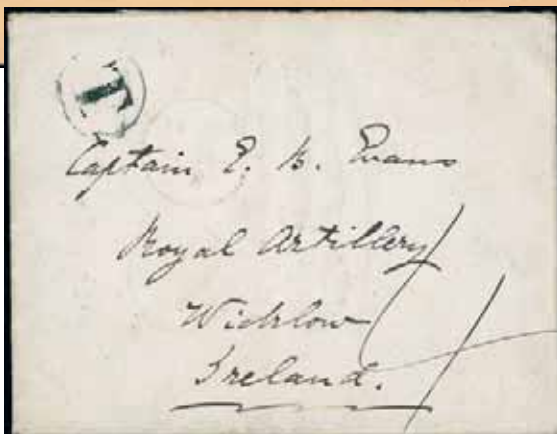 T
Captain E. B. Evans
Royal Artillery
Wicklow
Ireland.